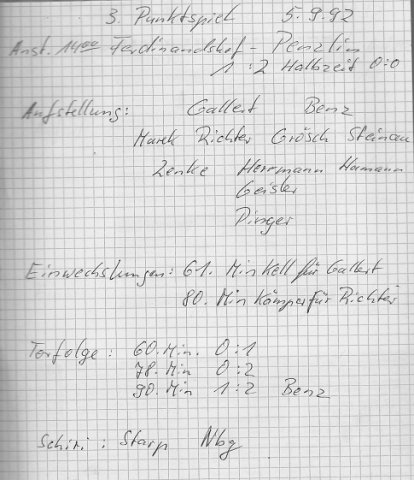 3. Punktspiel 5.9.92
Anst. 14⁰⁰ Ferdinandshof - Penzlin
1 : 2 Halbzeit 0:0
Aufstellung: Gallert Benz
Marek Richter Grösch Steinau
Zenke Herrmann Hamann
Geisler
Dinger
Einwechslungen: 61. Min Kell für Gallert
80. Min Kämper für Richter
Torfolge: 60. Min. 0:1
78. Min 0:2
90. Min 1:2 Benz
Schiri: Starp Nbg